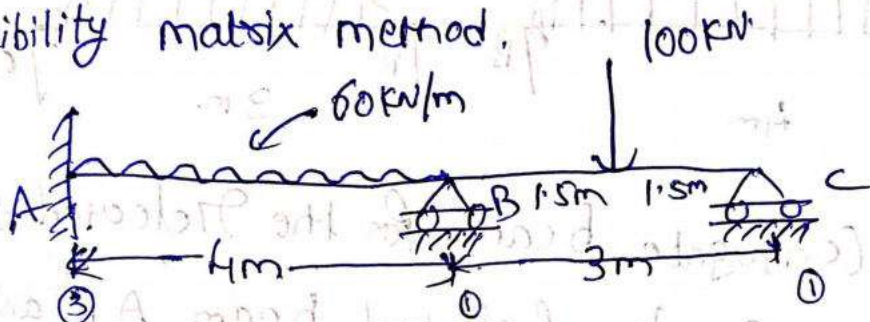 ibility matrix method.
100KN
60KN/m
A
B
1.5m
1.5m
C
4m
3m
③
①
①